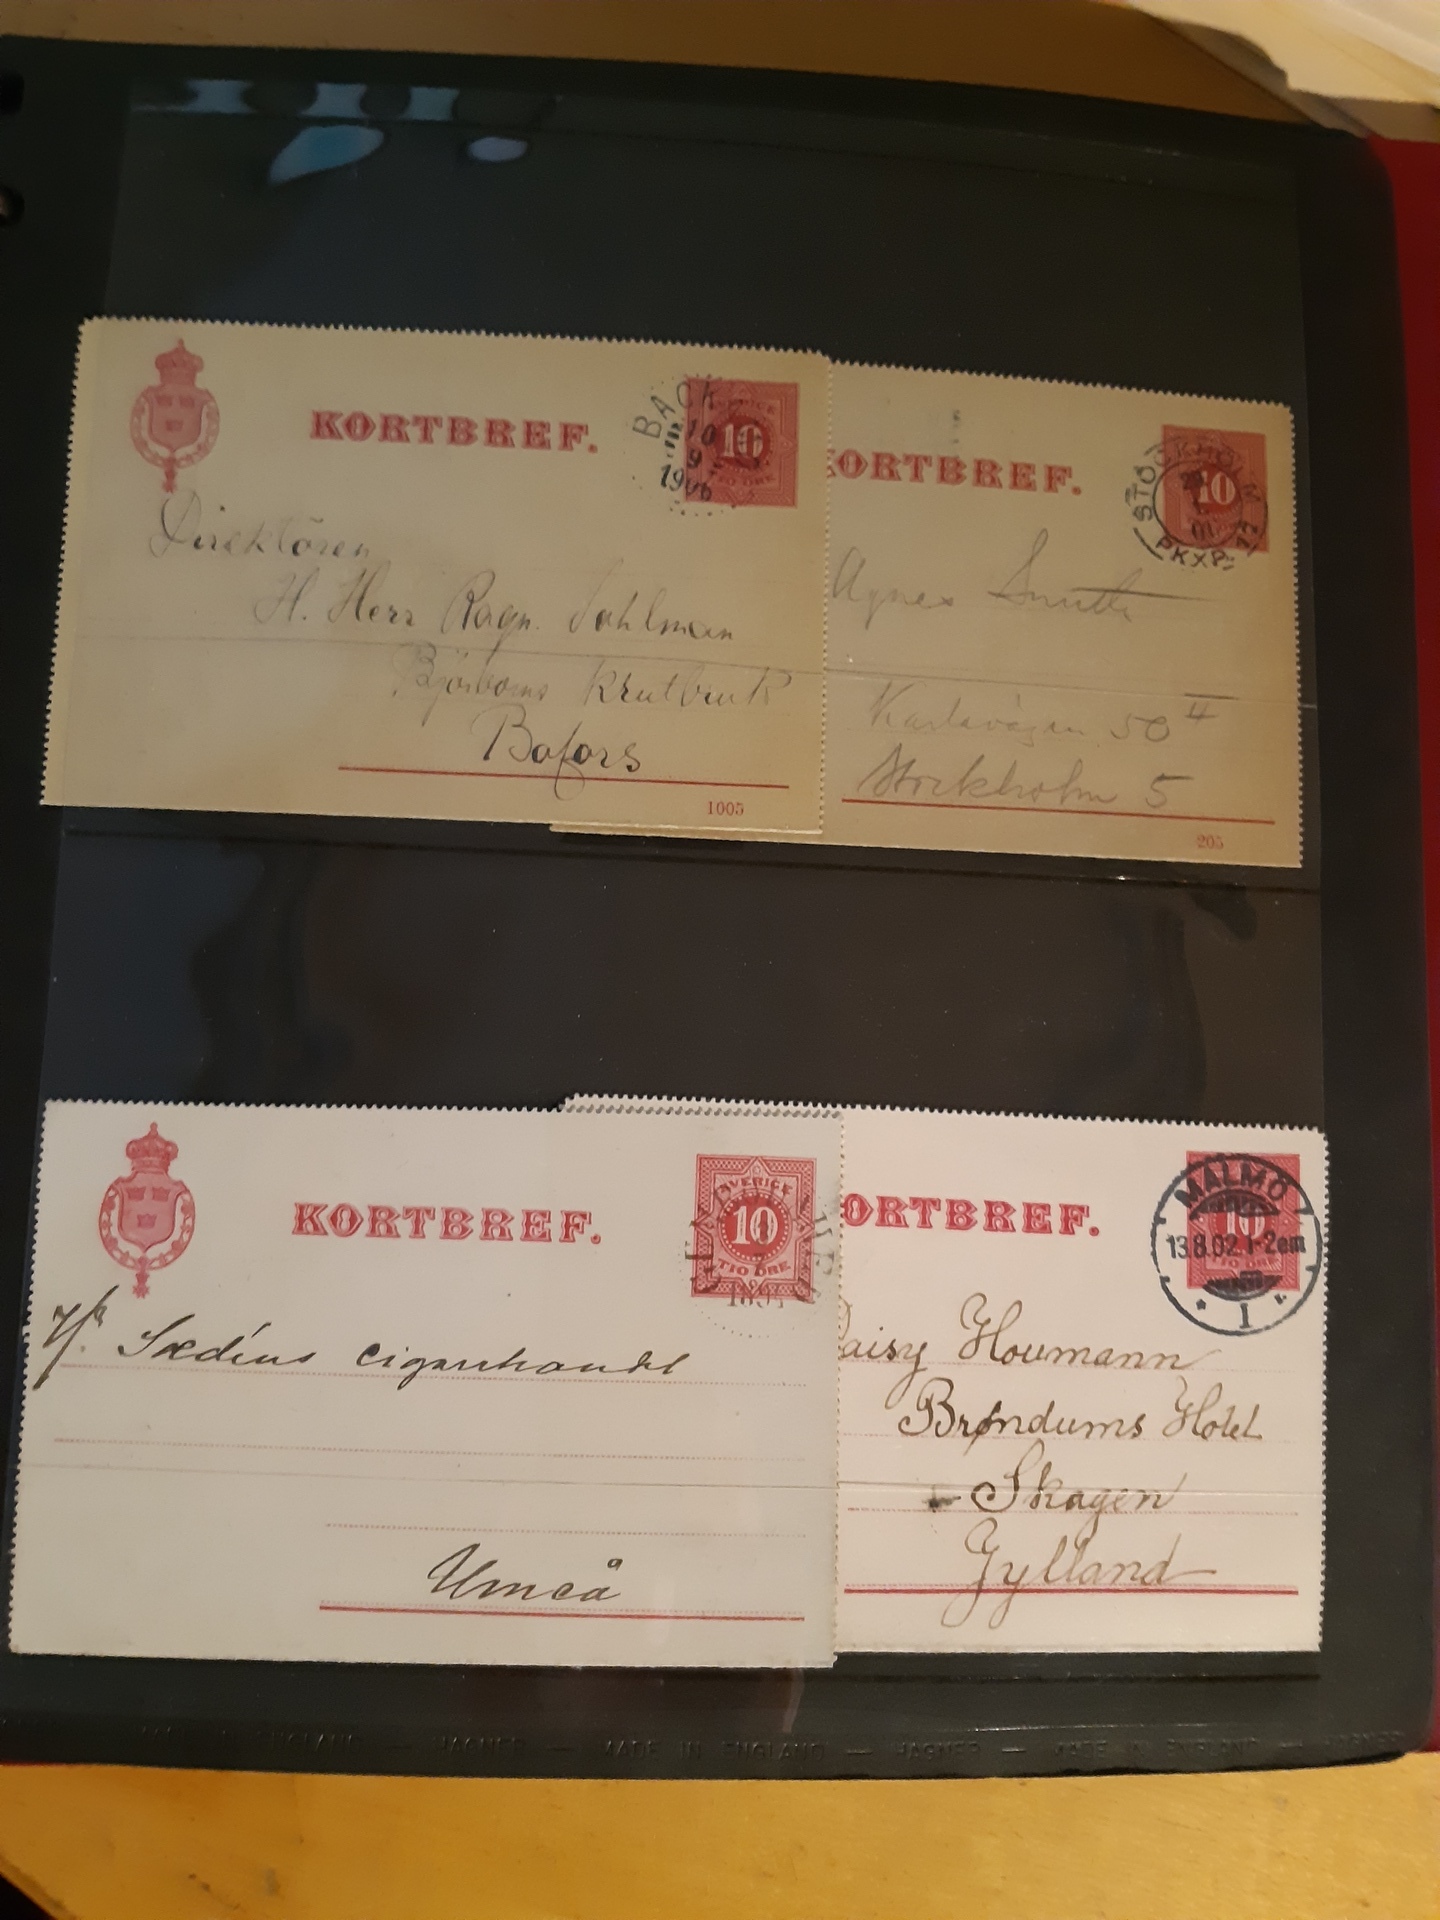 KORTBREF.
BACK
10
9
1906
SVERIGE
10
TIO ÖRE
Direktören
H. Herr Ragn. Sohlman
Björkborns Krutbruk
Bofors
1005
KORTBREF.
STOCKHOLM
10
01
PKXP. 12
Agnes Smith
Karlavägen 50 II
Stockholm 5
205
KORTBREF.
SVERIGE
10
TIO ÖRE
cigarrhandel
Umeå
ORTBREF.
MALMÖ
13.8.02. 1-2em
1
10
TIO ÖRE
Daisy Houmann
Brøndums Hotel
Skagen
Jylland
ENGLAND — HAGNER — MADE IN ENGLAND — HAGNER — MADE IN ENGLAND — HAGNER